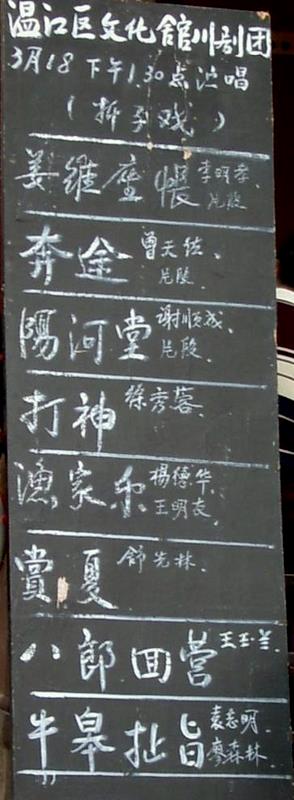 温江区文化館川剧团
3月18下午1.30点演唱
(折子戏)
姜維座帳 李明孝、
片段
奔途 曾天
片段、
陽河堂 谢順成、
片段、
打神 徐秀蓉、
漁家乐 楊德华、
王明友、
賞夏 舒光林、
八郎回营 王玉兰、
牛皋扯旨 袁志明、
廖森林、